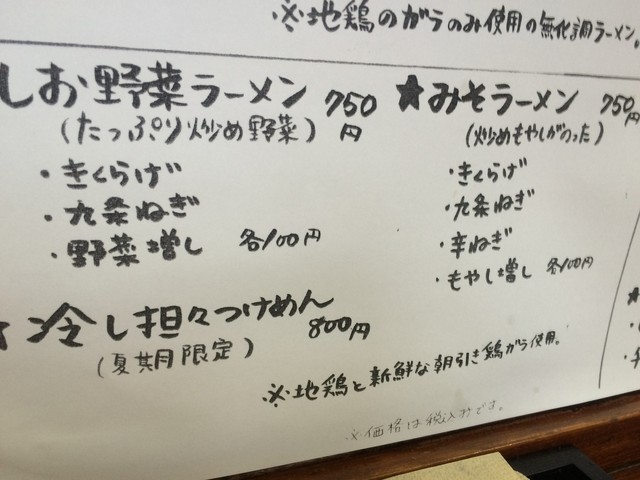 ※地鶏のガラのみ使用の無化調ラーメン。
しお野菜ラーメン 750円
(たっぷり炒め野菜)
・きくらげ
・九条ねぎ
・野菜増し 各100円
★みそラーメン 750円
(炒めもやしがのった)
・きくらげ
・九条ねぎ
・辛ねぎ
・もやし増し 各100円
★冷し担々つけめん 800円
(夏期限定)
※地鶏と新鮮な朝引き鶏ガラ使用。
※価格は税込みです。